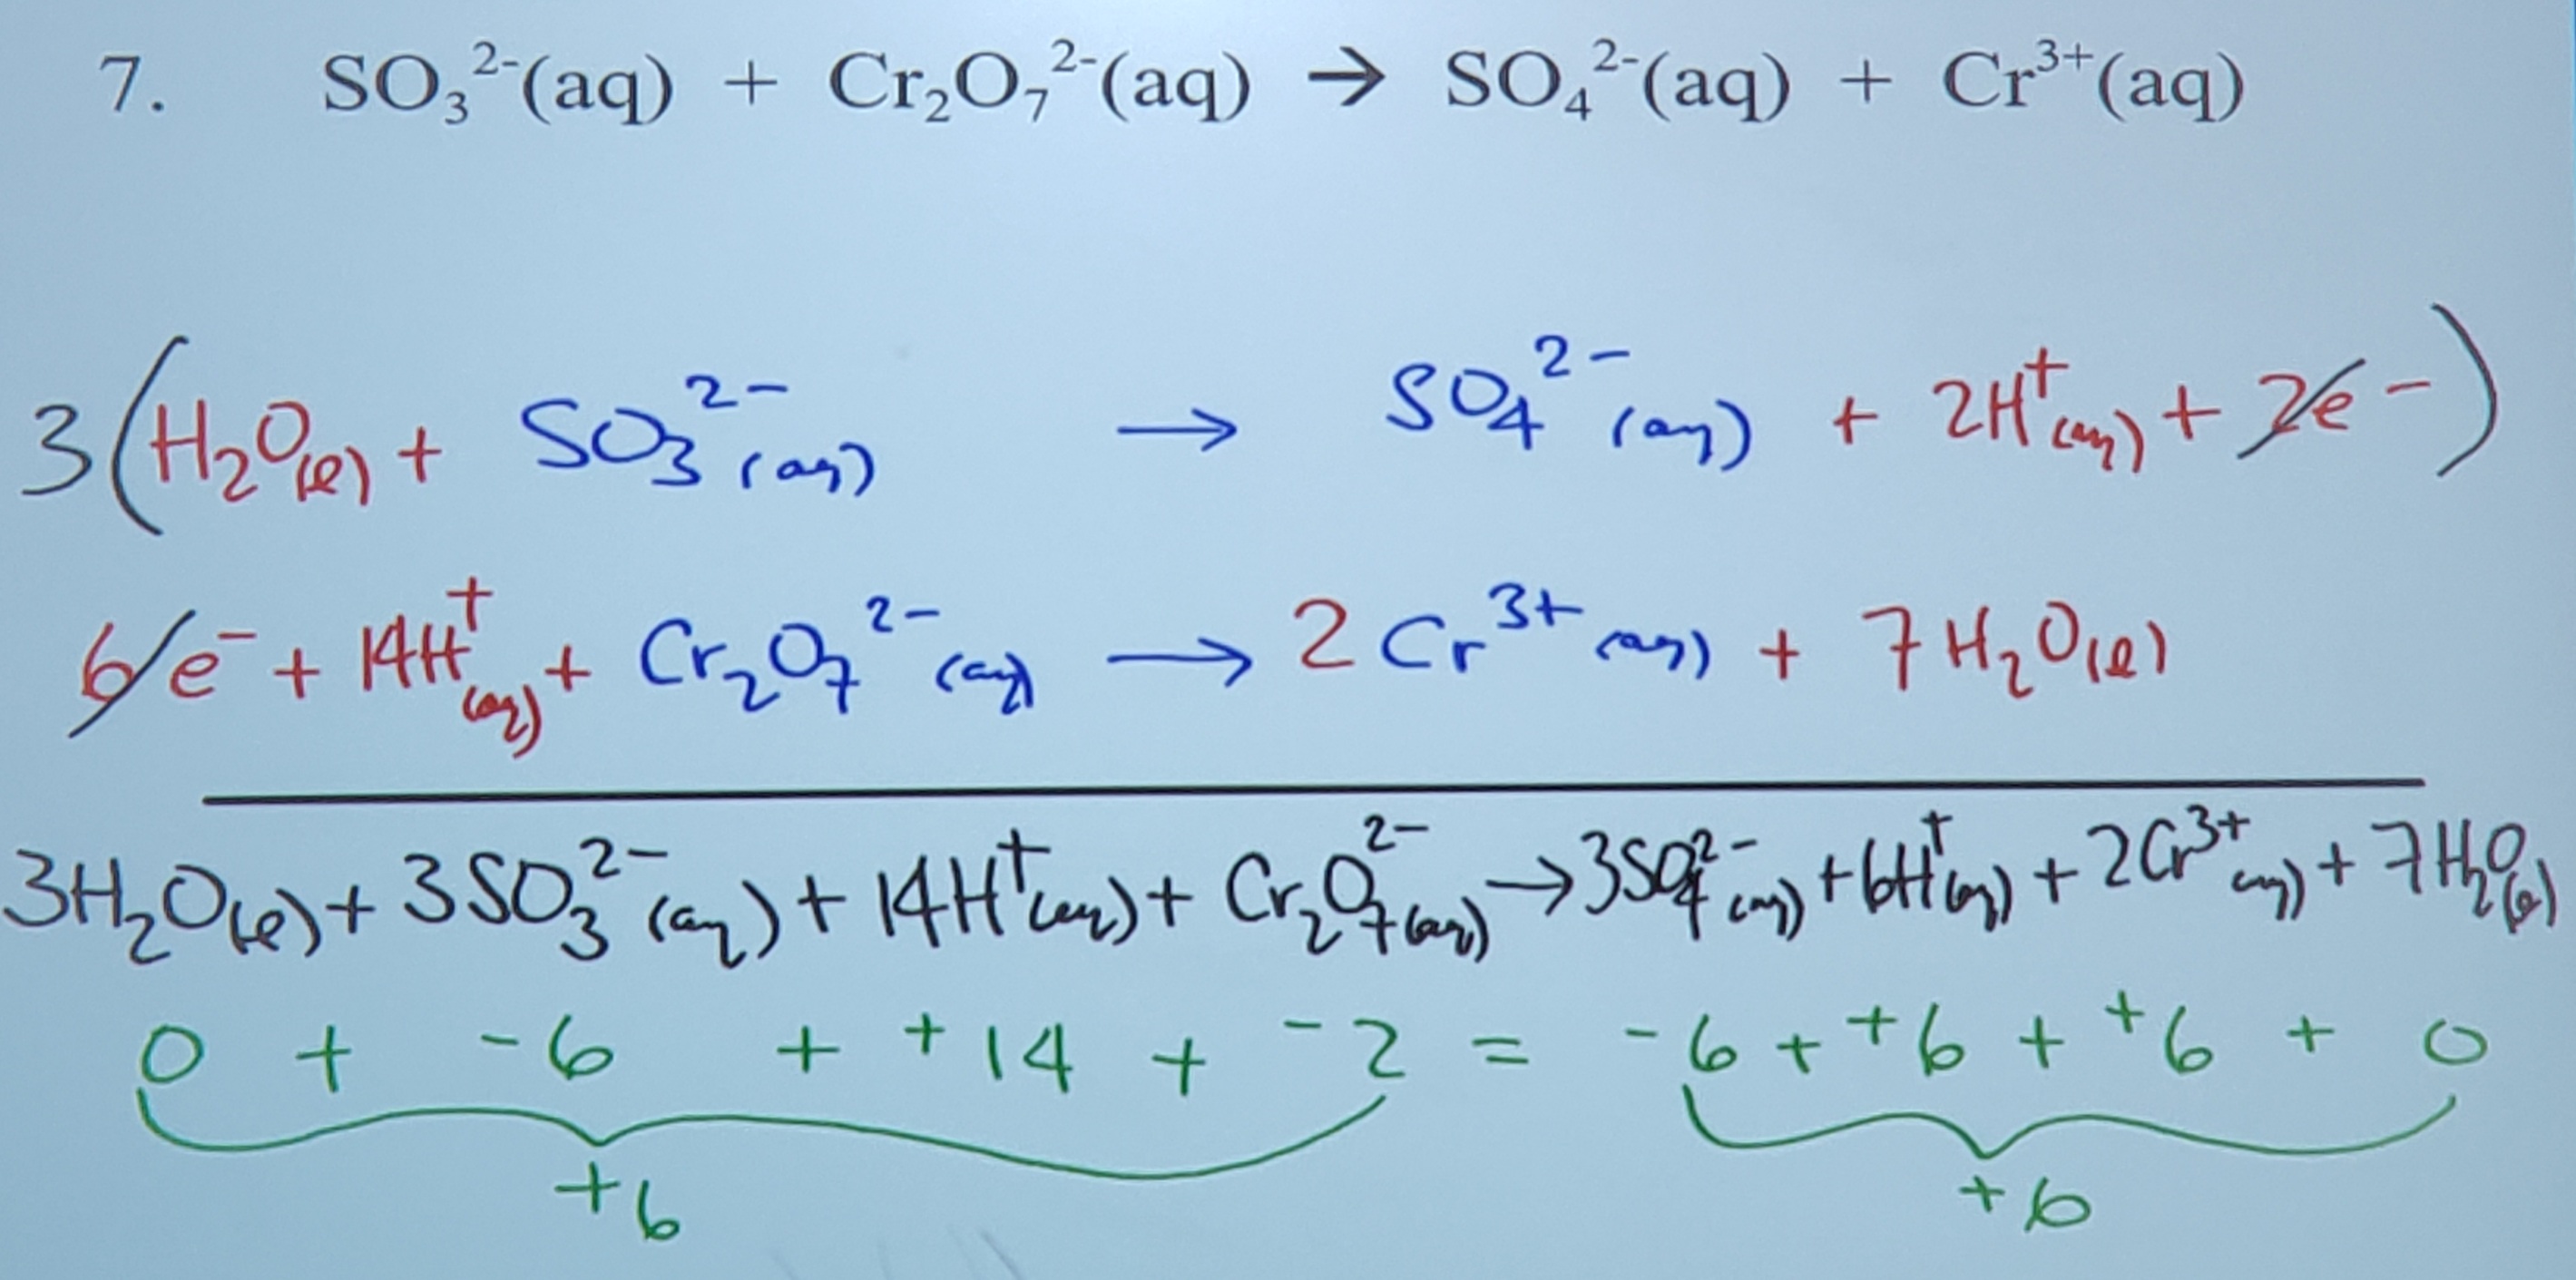 7. SO₃²⁻(aq) + Cr₂O₇²⁻(aq) → SO₄²⁻(aq) + Cr³⁺(aq)
3(H₂O(l) + SO₃²⁻(aq) → SO₄²⁻(aq) + 2H⁺(aq) + 2e⁻)
6e⁻ + 14H⁺(aq) + Cr₂O₇²⁻(aq) → 2Cr³⁺(aq) + 7H₂O(l)
3H₂O(l) + 3SO₃²⁻(aq) + 14H⁺(aq) + Cr₂O₇²⁻(aq) → 3SO₄²⁻(aq) + 6H⁺(aq) + 2Cr³⁺(aq) + 7H₂O(l)
0 + -6 + +14 + -2 = -6 + +6 + +6 + 0
+6 +6